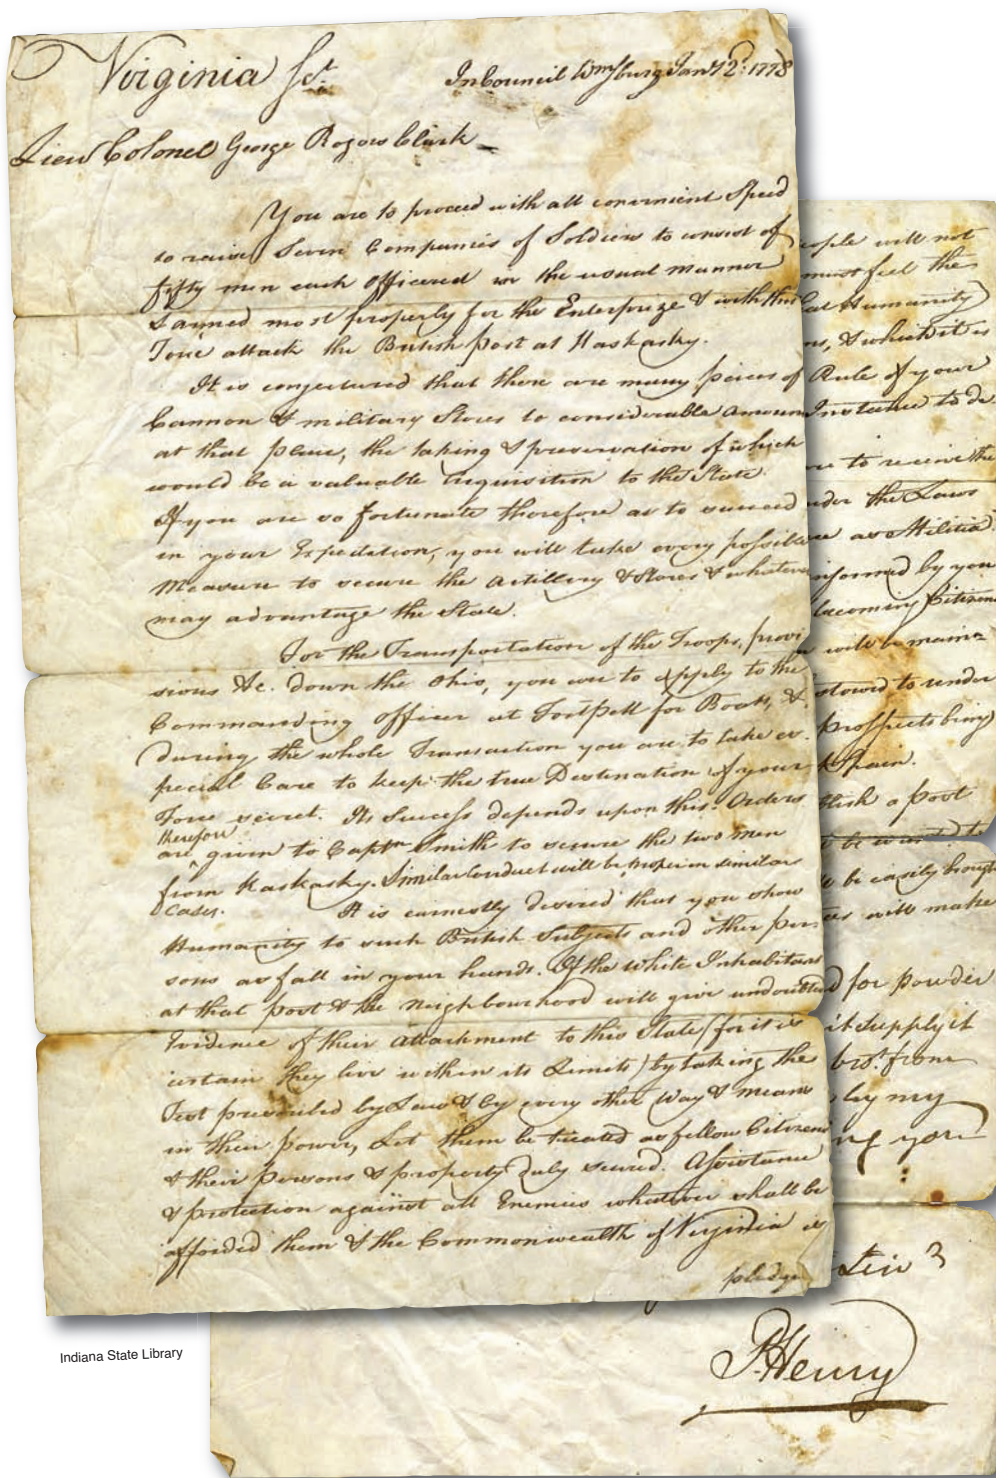 Virginia Sct.
In Council Wmsburg Jany 2d. 1778
Lieut Colonel George Rogers Clark
You are to proceed with all convenient Speed
to raise Seven Companies of Soldiers to consist of
fifty men each officered in the usual manner
& armed most properly for the Enterprize & with this
Force attack the British post at Kaskasky.
It is conjectured that there are many pieces of
Cannon & military Stores to considerable amount
at that place, the taking & preservation of which
would be a valuable acquisition to the State.
If you are so fortunate therefore as to succeed
in your Expectation, you will take every possible
Measure to secure the artillery & Stores & whatever
may advantage the State.
For the Transportation of the Troops, provi
sions &c. down the Ohio, you are to apply to the
Commanding Officer at Fort Pitt for Boats, &
during the whole Transaction you are to take es
pecial Care to keep the true Destination of your
Force secret. Its success depends upon this. Orders
therefore
are given to Captn Smith to secure the two men
from Kaskasky. Similar Conduct will be proper in similar
cases.
It is earnestly desired that you show
Humanity to such British Subjects and other per
sons as fall in your hands. If the white Inhabitants
at that post & the neighbourhood will give undoubted
Evidence of their attachment to this State (for it is
certain they live within its Limits) by taking the
Test prescribed by Law & by every other way & means
in their power, Let them be treated as fellow Citizens
& their persons & property duly secured. Assistance
& protection against all Enemies whatever shall be
afforded them & the Commonwealth of Virginia is
pledged
people will not
must feel the
that Humanity
ns, & which it is
Rule of your
Instance to de
to receive the
under the Laws
as Militia
informed by you
becoming Citizens
will be
to under
prospects being
Spain.
blish a post
be
be easily brought
will make
for powder
it supply it
from
by my
ng you
P. Henry
Indiana State Library